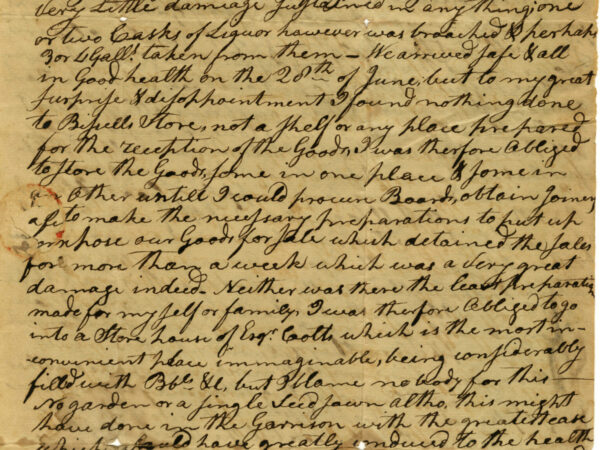 very Little damage Sustained in any thing one
or two Casks of Liquor however was broached & perhaps
3 or 4 Galls. taken from them – We arrived safe & all
in Good health on the 28th of June, but to my great
surprise & disoppointment I found nothing done
to Bissells Store, not a shelf or any place prepared
for the reception of the Goods, I was therfore Obliged
to store the Goods, some in one place & some in
an Other untill I could procure Boards, obtain Joiners
&c to make the necessary preparations to put up
expose our Goods for Sale which detained the Sales
for more than a week which was a very great
damage indeed – Neither was there the least preparation
made for my self or family, I was therfore Obliged to go
into a Store house of Esqr. which is the most in-
convenient place immaginable, being considerably
filld with Bbls. &c, but I blame nobody for this –
No garden or a single Seed sown altho, this might
have done in the Garrison with the greatest ease
which would have greatly conduced to the health